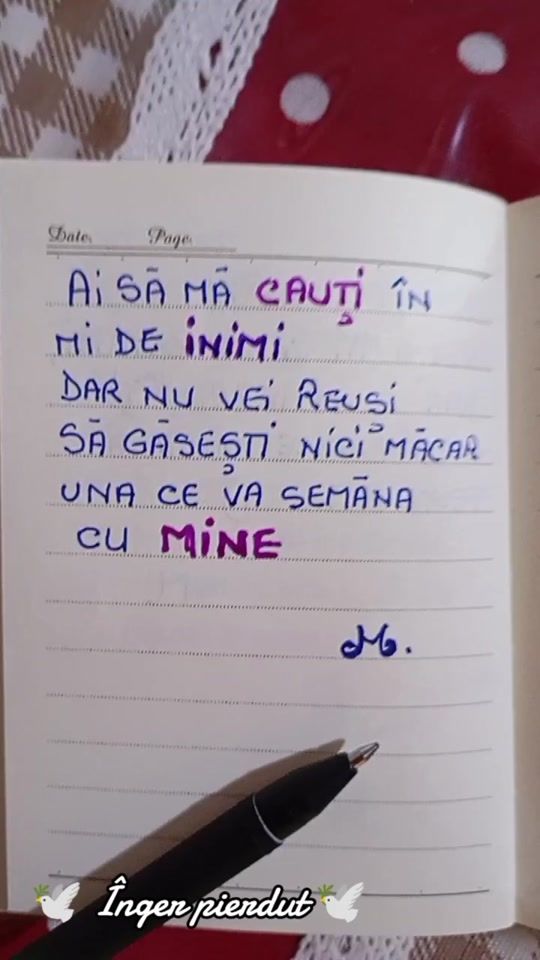 Date.    Page.
Ai SĂ MĂ CAUȚI ÎN
Mi DE iNiMi
DAR NU VEi REUȘi
SĂ GĂSEȘTi NiCi MĂCAR
UNA CE VA SEMĂNA
CU MiNE
M.
🕊️ Înger pierdut 🕊️